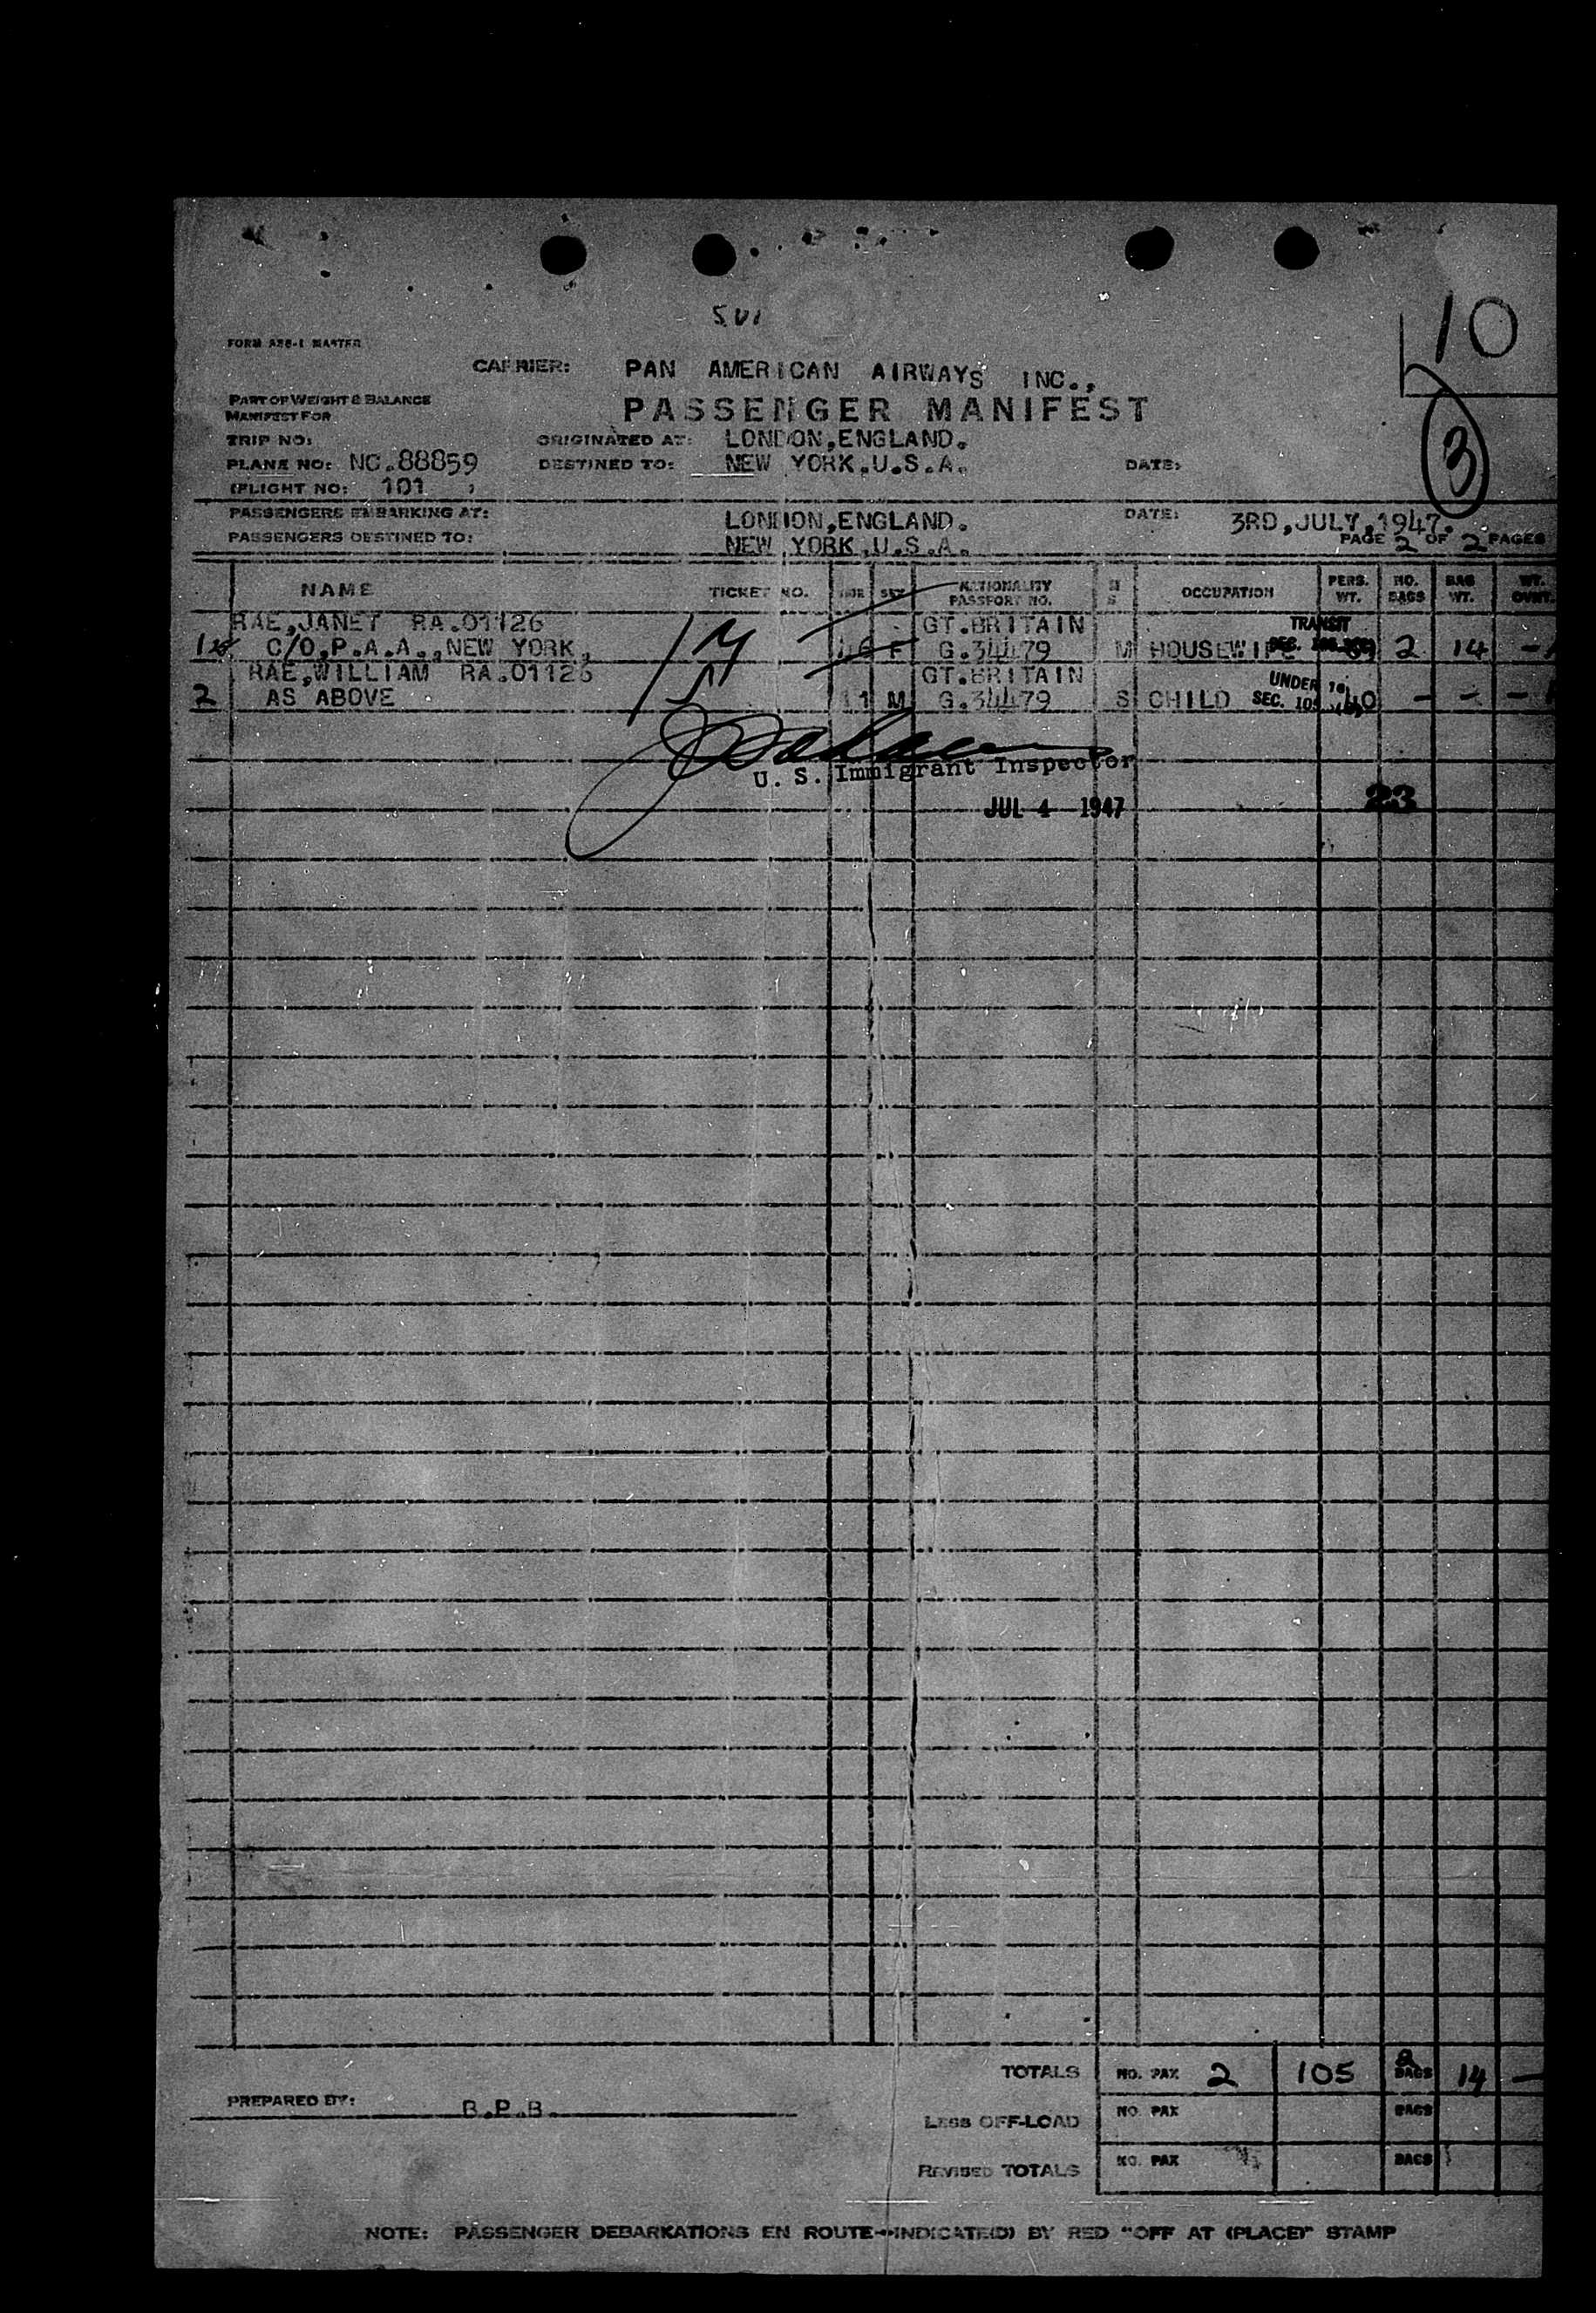 501
10
FORM
CARRIER: PAN AMERICAN AIRWAYS INC.,
PART OF WEIGHT & BALANCE
MANIFEST FOR
PASSENGER MANIFEST
3
TRIP NO:
ORIGINATED AT: LONDON,ENGLAND.
PLANE NO: NC.88859
DESTINED TO: NEW YORK,U.S.A.
DATE:
(FLIGHT NO: 101 )
PASSENGERS EMBARKING AT: LONDON,ENGLAND.
DATE: 3RD,JULY,1947.
PASSENGERS DESTINED TO: NEW YORK,U.S.A.
PAGE 2 OF 2 PAGES
NAME TICKET NO. SEX NATIONALITY PASSPORT NO. M S OCCUPATION PERS. WT. NO. BAGS BAG WT. WT.
RAE,JANET RA.01126 GT.BRITAIN TRANSIT
1 C/O,P.A.A.,NEW YORK, F G.34479 M HOUSEWIFE 2 14 -
RAE,WILLIAM RA.01126 GT.BRITAIN UNDER 16
2 AS ABOVE 11 M G.34479 S CHILD SEC. 105 40 - - -
U. S. Immigrant Inspector
JUL 4 1947
23
TOTALS NO. PAX 2 105 2 BAGS 14 -
PREPARED BY: B.P.B.
LESS OFF-LOAD NO. PAX BAGS
REVISED TOTALS NO. PAX BAGS
NOTE: PASSENGER DEBARKATIONS EN ROUTE--INDICATE(D) BY RED "OFF AT (PLACE)" STAMP